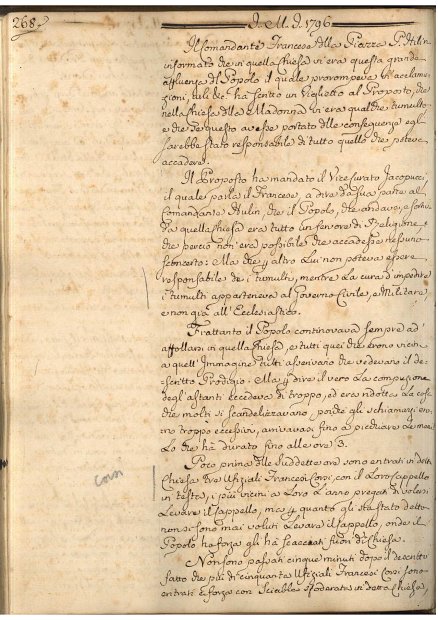 268
A. M. D. 1796
Il Comandante Francese della Piazza P. Hulin
informato che in quella Chiesa vi era questa grande
affluenza di Popolo il quale prorompeva in acclama-
zioni tali &c. hà scritto un Biglietto al Proposto, che
nella Chiesa della Madonna vi era qualche tumulto
e che se questo avesse portato delle conseguenze egli
sarebbe stato responsabile di tutto quello che poteva
accadere.
Il Proposto hà mandato il Vice Curato Jacopucci,
il quale parla il Francese, a dire da sua parte al
Comandante Hulin, che il Popolo, che andava, e sortiva
da quella Chiesa era tutto un fervore di Religione,
che perciò non era possibile che accadesse nessuno
sconcerto: Ma che p altro Lui non poteva essere
responsabile de i tumulti, mentre la cura d'impedire
i tumulti apparteneva al Governo Civile, e Militare
e non già all' Ecclesiastico.
Frattanto il Popolo continovava sempre ad
affollarsi in quella Chiesa, e tutti quei che erono vicini
a quell' Immagine tutti asserivano che vedevano il de-
scritto Prodigio. Ma p dire il vero la compunzione
degl' astanti eccedeva di troppo, ed era ridotta la cosa
che molti si scandelizzavano, poichè gli schiamazzi era-
no troppo eccessivi, arrivavano fino a picchiare le
Lo che hà durato fino alle ore 3.
Poco prima delle suddette ore sono entrati in detta
Chiesa tre Ufiziali Francesi Corsi, con il Loro Cappello
in testa, i più vicini a Loro l' anno pregati di volersi
Levare il Cappello, ma p quanto gli sia stato detto
non si sono mai voluti Levare il Cappello, onde il
Popolo ha forza gli hà scacciati fuori di Chiesa.
Non sono passati cinque minuti dopo il descritto
fatto che più di cinquanta Ufiziali Francesi Corsi sono
entrati a forza con Sciable sfoderate in detta Chiesa,
Corsi